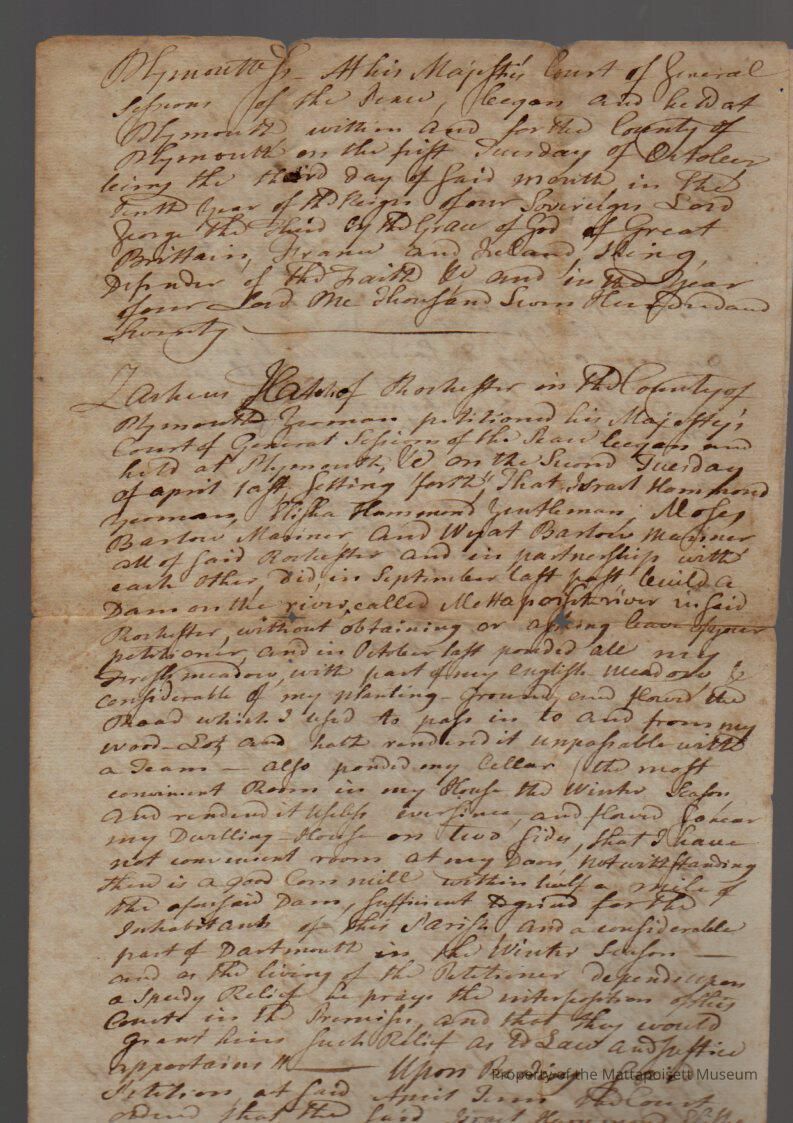 Plymouth Ss - At his Majestys Court of General
Sessions of the Peace, began and held at
Plymouth within and for the County of
Plymouth on the first Tuesday of October
being the third Day of said month in the
tenth year of the Reign of our Sovereign Lord
George the Third by the Grace of God of Great
Brittain, France and Ireland, King,
Defender of the Faith &c and in the Year
of our Lord One Thousand Seven Hundred and
Seventy
Zacheus Hatch of Rochester in the County of
Plymouth Yeoman petitioned his Majesty's
Court of General Sessions of the Peace began and
held at Plymouth, &c on the Second Tuesday
of april last setting forth, That Israel Hammond
yeoman, Elisha Hammond Gentleman, Moses
Barlow Mariner and Wyat Barlow Mariner
all of said Rochester and in partnership with
each other, Did, in September last past build a
Dam on the river, called Mettapoisit river in said
Rochester, without obtaining or asking leave of your
petitioner, and in October last ponded all my
Fresh meadow, with part of my english meadow &
considerable of my planting-ground, and flowed the
Road which I used to pass in to and from my
wood-Lot, and hath rendered it unpassable with
a Team - also ponded my Cellar (the most
convenient Room in my House the Winter Season,
and rendered it useless ever since, and flowed so near
my Dwelling-House on two sides, that I have
not convenient room at my Door, notwithstanding
there is a good Corn mill within half a mile of
the aforesaid Dam, sufficient to grind for the
Inhabitants of this Parish, and a considerable
part of Dartmouth in the Winter Season -
and as the living of the Petitioner depends upon
a Speedy Relief he prays the interposition of this
Court in the Premises, and that they would
grant him such Relief as to Law and Justice
appertains Upon Reading of
Petition at said April Term the Court
ordered that the said Israel Hammond
Property of the Mattapoisett Museum